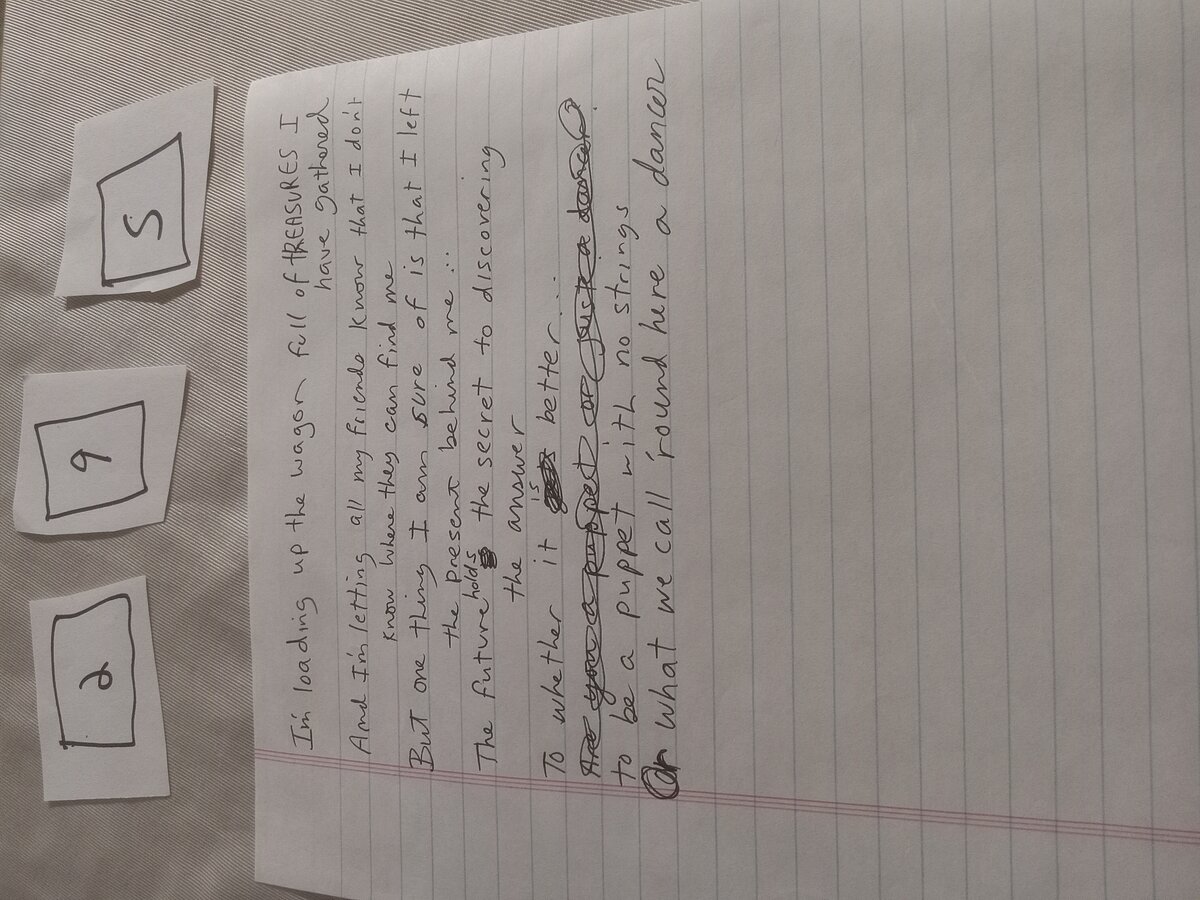 2 9 5
I'm loading up the wagon full of TREASURES I
have gathered
And I'm letting all my friends know that I don't
know where they can find me
But one thing I am sure of is that I left
the present behind me...
The future holds the secret to discovering
the answer
To whether it is better...
Are you a puppet or just a dancer?
to be a puppet with no strings
Or what we call 'round here a dancer